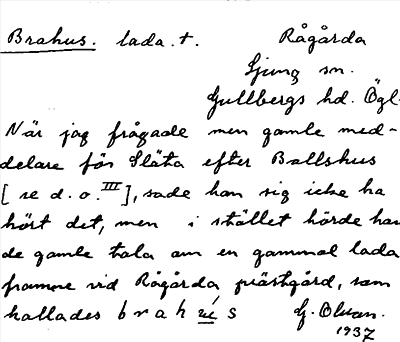 Brahus. lada. t. Rågårda
Ljung sn.
Gullbergs hd. Ögl.
När jag frågade men gamle med-
delare för Släta efter Ballshus
[se d. o. III], sade han sig icke ha
hört det, men i stället hörde han
de gamle tala om en gammal lada
framme vid Rågårda prästgård, som
kallades brahús G. Olson.
1937